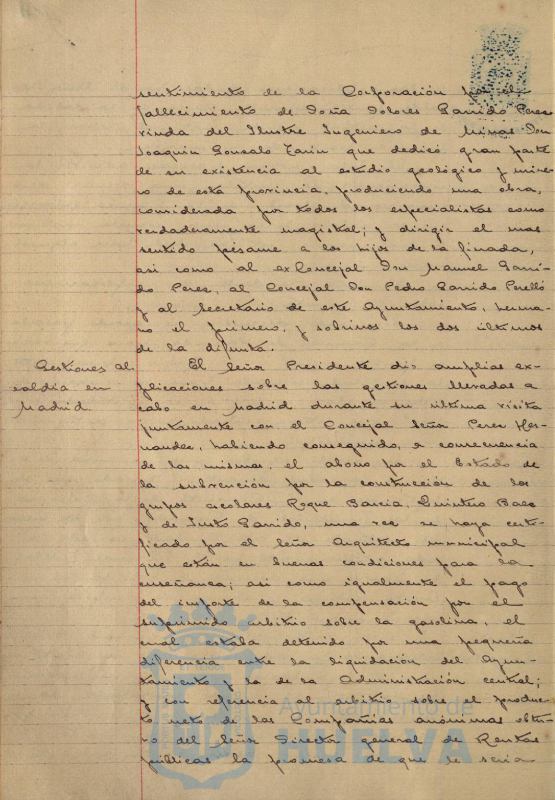 sentimiento de la Corporación por el
fallecimiento de Doña Dolores Garrido Perez
viuda del Ilustre Ingeniero de Minas Don
Joaquin Gonzalo Tarin que dedicó gran parte
de su existencia al estudio geológico y mine-
ro de esta provincia, produciendo una obra,
considerada por todos los especialistas como
verdaderamente magistral; y dirigir el mas
sentido pésame a los hijos de la finada,
asi como al ex Concejal Don Manuel Garri-
do Perez, al Concejal Don Pedro Garrido Perelló
y al Secretario de este Ayuntamiento, herma-
no el primero, y sobrinos los dos últimos
de la difunta.
Gestiones al
caldía en
Madrid
El Señor Presidente dio amplias ex-
plicaciones sobre las gestiones llevadas a
cabo en Madrid durante su última visita
juntamente con el Concejal Señor Perez Her-
nandez, habiendo conseguido, a consecuencia
de las mismas, el abono por el Estado de
la subvención por la construcción de los
grupos escolares Roque Barcia, Quintero Baez
y de Justo Garrido, una vez se haya certi-
ficado por el Señor Arquitecto municipal
que están en buenas condiciones para la
enseñanza; asi como igualmente el pago
del importe de la compensación por el
suprimido arbitrio sobre la gasolina, el
cual estaba detenido por una pequeña
diferencia entre la liquidación del Ayun-
tamiento y la de la Administración central;
y con referencia al arbitrio sobre el produc-
to neto de las Compañias anónimas obtu-
vo del Señor Director general de Rentas
públicas la promesa de que le sería
Ayuntamiento de
HUELVA